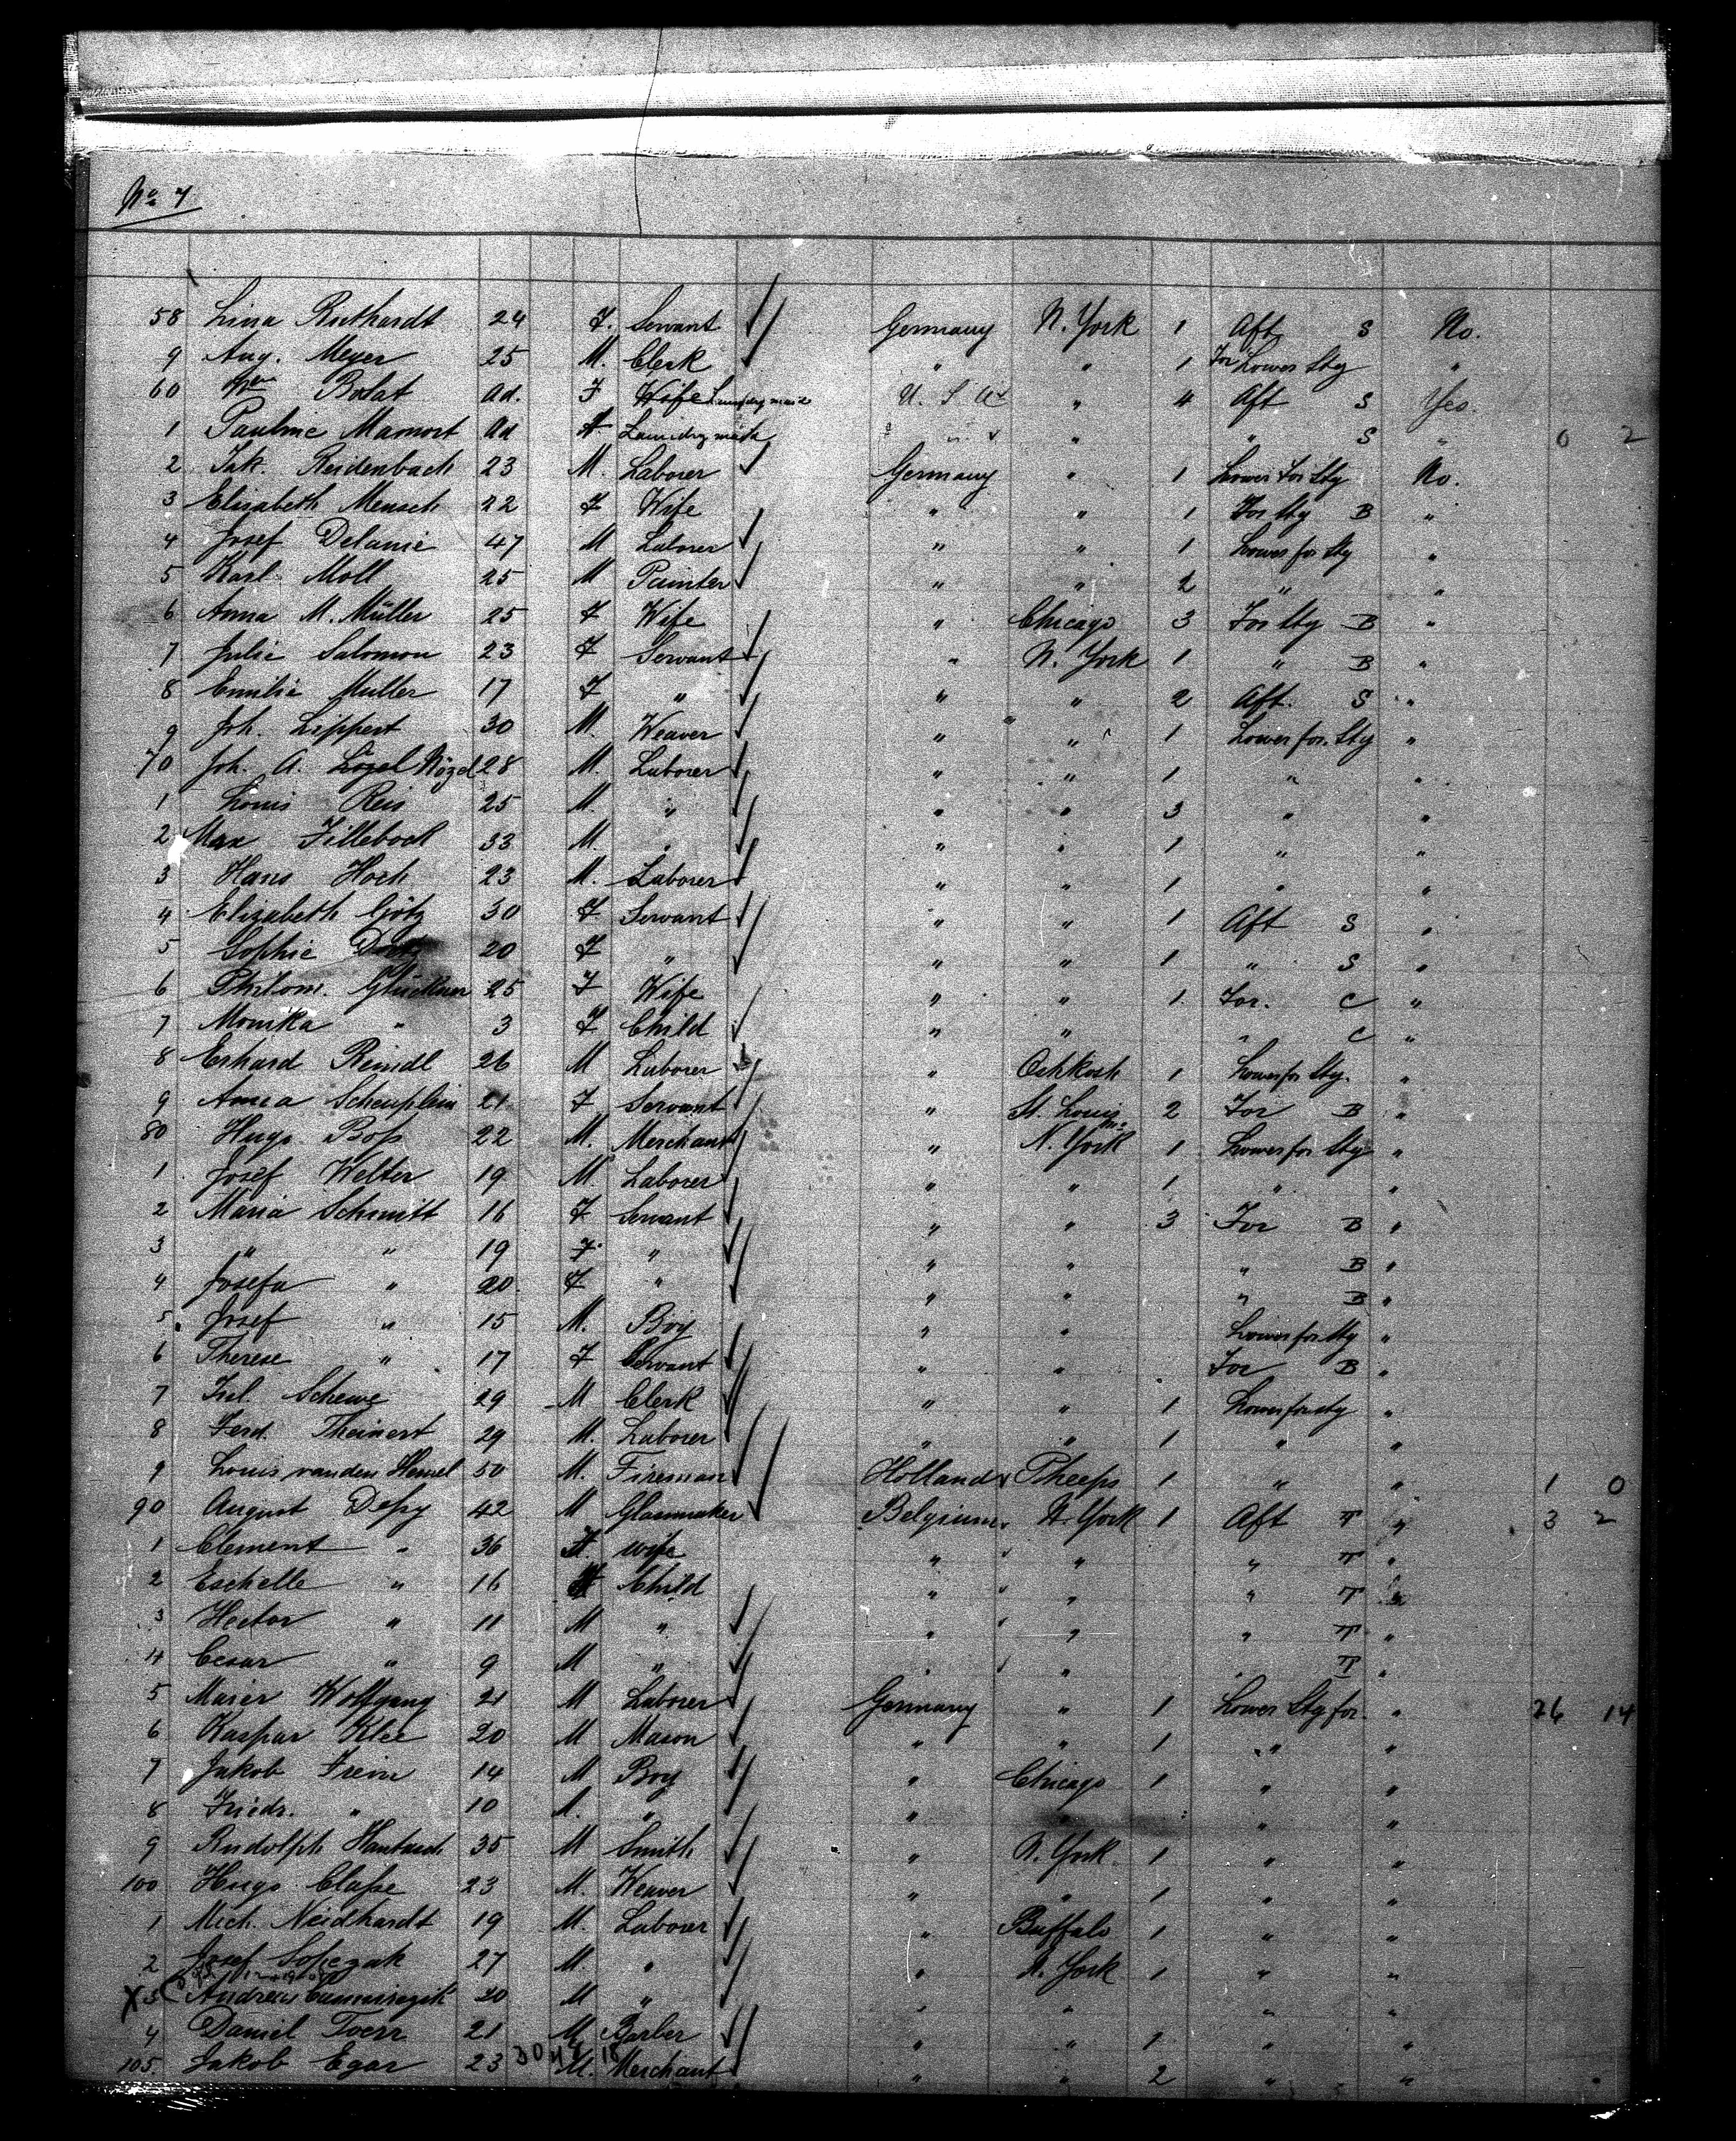 No 7
58 Lina Ruthardt 24 F. Servant Germany N. York 1 Aft S No.
9 Aug. Meyer 25 M. Clerk " " 1 For Lower Stg "
60 Bodat Ad. F Wife Laundry maid U. S. A " 4 Aft S Yes.
1 Pauline Mamort Ad F Laundry maid " " " S " 0 2
2 Jak. Reidenbach 23 M. Laborer Germany " 1 Lower For Stg No.
3 Elisabeth Mensch 22 F Wife " " 1 For Stg B "
4 Josef Delamie 47 M Laborer " " 1 Lower for Stg "
5 Karl Moll 25 M Painter " " 2 " "
6 Anna M. Müller 25 F Wife " Chicago 3 For Stg B "
7 Julie Salomon 23 F Servant " N. York 1 " B "
8 Emilie Muller 17 F " " " 2 Aft. S "
9 Joh. Lippert 30 M. Weaver " " 1 Lower for. Stg "
70 Joh. A. Nögel 28 M. Laborer " " 1 " "
1 Louis Reis 25 M. " " " 3 " "
2 Max Fillebock 33 M. " " " 1 " "
3 Hans Hoch 23 M. Laborer " " 1 " "
4 Elizabeth Götz 30 F Servant " " 1 Aft S "
5 Sophie 20 F " " " 1 " S "
6 Philom. Glückner 25 F Wife " " 1 For. C "
7 Monika " 3 F Child " " " C "
8 Erhard Reindl 26 M Laborer " Oshkosh 1 Lower for Stg. "
9 Anna Scheuplein 21 F Servant " St. Louis 2 For B "
80 Hugo Bops 22 M. Merchant " N. York 1 Lower for Stg "
1 Josef Welter 19 M Laborer " " 1 " "
2 Maria Schmitt 16 F Servant " " 3 For B "
3 " " 19 F " " " " B "
4 Josefa " 20 F " " " " B "
5 Josef " 15 M. Boy " " Lower for Stg "
6 Therese " 17 F Servant " " For B "
7 Jul. Schewe 29 M Clerk " " 1 Lower for Stg "
8 Ferd. Theinert 29 M. Laborer " " 1 " "
9 Louis van den Hemel 50 M. Fireman Holland Pheeps 1 " " 1 0
90 August Depy 42 M Glassmaker Belgium N. York 1 Aft T " 3 2
1 Clement " 36 F wife " " " T "
2 Eschelle " 16 Child " " " T "
3 Hector " 11 M " " " " T "
4 Cesar " 9 M " " " " T "
5 Maier Wolfgang 21 M Laborer Germany " 1 Lower Stg for. " 26 14
6 Kaspar Klee 20 M Mason " " 1 " "
7 Jakob Frein 14 M Boy " Chicago 1 " "
8 Friedr. " 10 M. " " " " "
9 Rudolph 35 M Smith " N. York 1 " "
100 Hugo Classe 23 M. Weaver " " 1 " "
1 Mich. Neidhardt 19 M. Laborer " Buffalo 1 " "
2 Josef Sopczak 27 M " " N. York 1 " "
X 3 Andreas 20 M " " " " "
4 Daniel Toerr 21 M Barber " " 1 " "
105 Jakob Egar 23 M. Merchant " " 2 " "